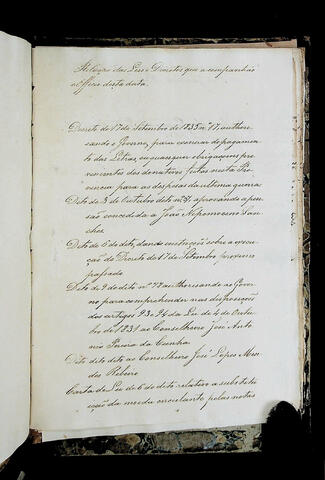 Relação das Leis e Decretos que acompanhão
o Officio desta data.
Decreto de 17 de Setembro de 1835 nº 77, authori-
sando o Governo, para exonerar do pagamen-
to das Letras, ou quaesquer obrigaçoens pro-
venientes dos donativos feitos nesta Pro-
vincia para as despezas da ultima guerra
Dito de 3 de Outubro dito nº 81 aprovando a pen-
são concedida a João Nepomoceno San-
ches
Dito de 6 de dito, dando instrucções sobre a execu-
ção do Decreto de 17 de Setembro proximo
passado
Dito de 9 de dito nº 72 authorisando ao Gover-
no para comprehender nas disposições
dos artigos 93 e 94 da Lei de 4 de Outu-
bro de 1831 ao Conselheiro José Anto-
nio Pereira da Cunha
Dito dito dito ao Conselheiro José Lopes Men-
des Ribeiro
Carta de Lei de 6 de dito relativa a substitu-
ição da moeda circulante pelas notas